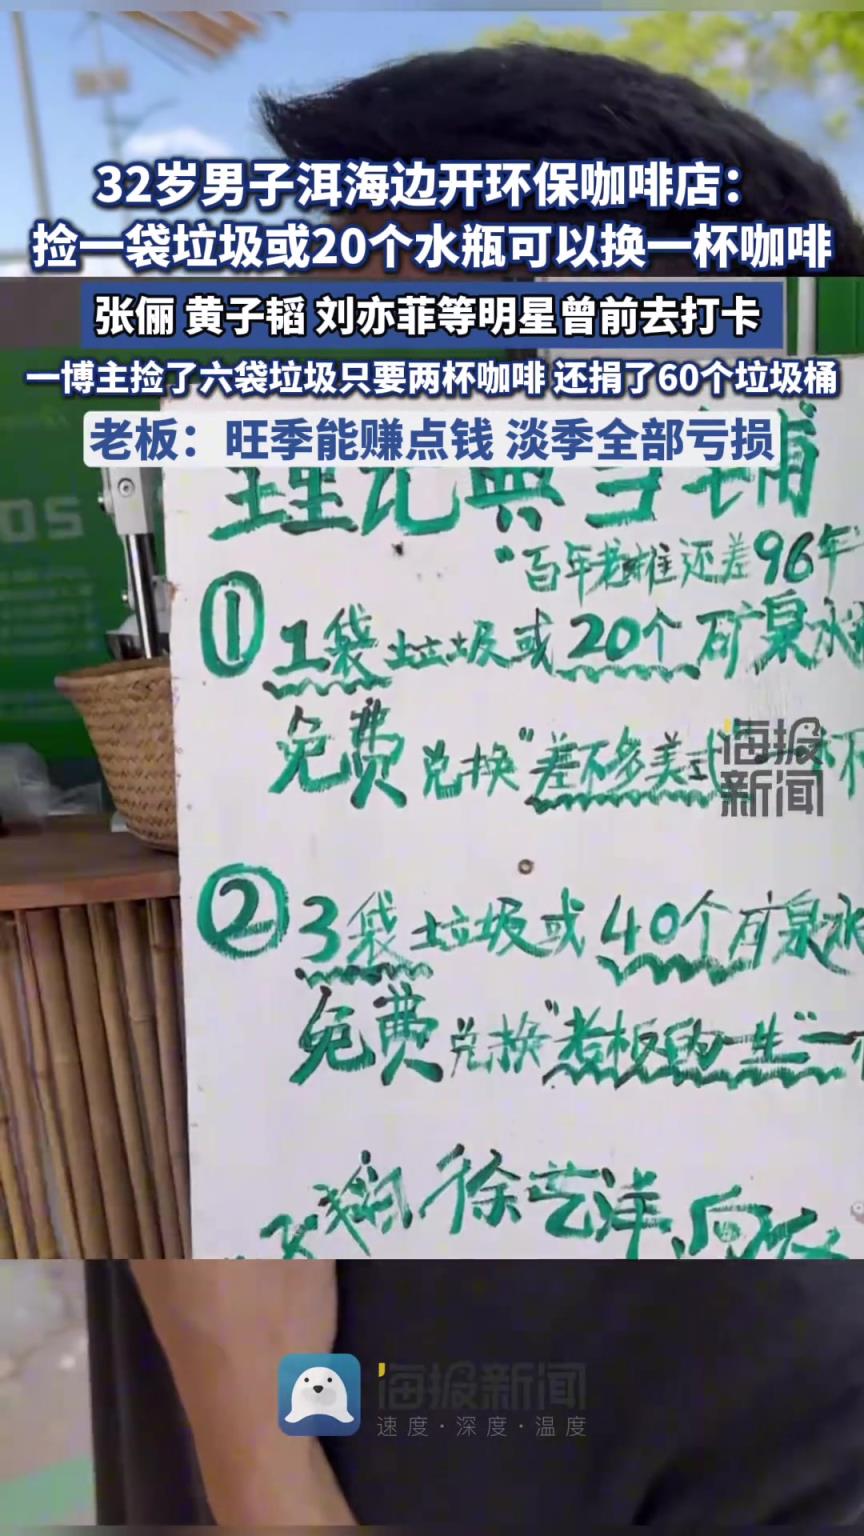 32岁男子洱海边开环保咖啡店：
捡一袋垃圾或20个水瓶可以换一杯咖啡
张俪 黄子韬 刘亦菲等明星曾前去打卡
一博主捡了六袋垃圾只要两杯咖啡 还捐了60个垃圾桶
老板：旺季能赚点钱 淡季全部亏损
OS
"百年老摊还差96年"
① 1袋垃圾或20个矿泉水
免费兑换"差不多美式
海报新闻
② 3袋垃圾或40个矿泉水
免费兑换"老板的一生"一
徐艺洋
海报新闻
速度·深度·温度